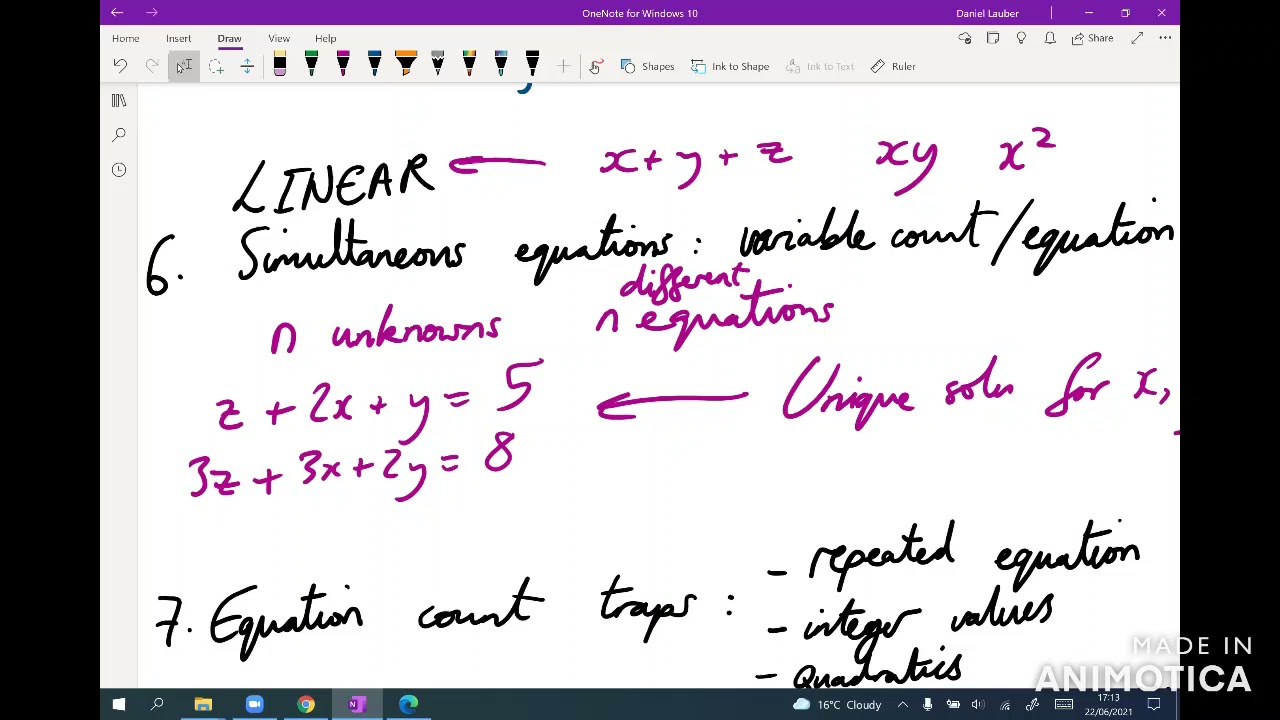 OneNote for Windows 10
Daniel Lauber
Home Insert Draw View Help
Share
Shapes Ink to Shape Ink to Text Ruler
LINEAR ← x + y + z xy x²
6. Simultaneous equations : variable count / equation
different
n unknowns n equations
z + 2x + y = 5 ← Unique soln for x,
3z + 3x + 2y = 8
7. Equation count traps :
- repeated equation
- integer values
- Quadratics
MADE IN
ANIMOTICA
16°C Cloudy
17:13
22/06/2021